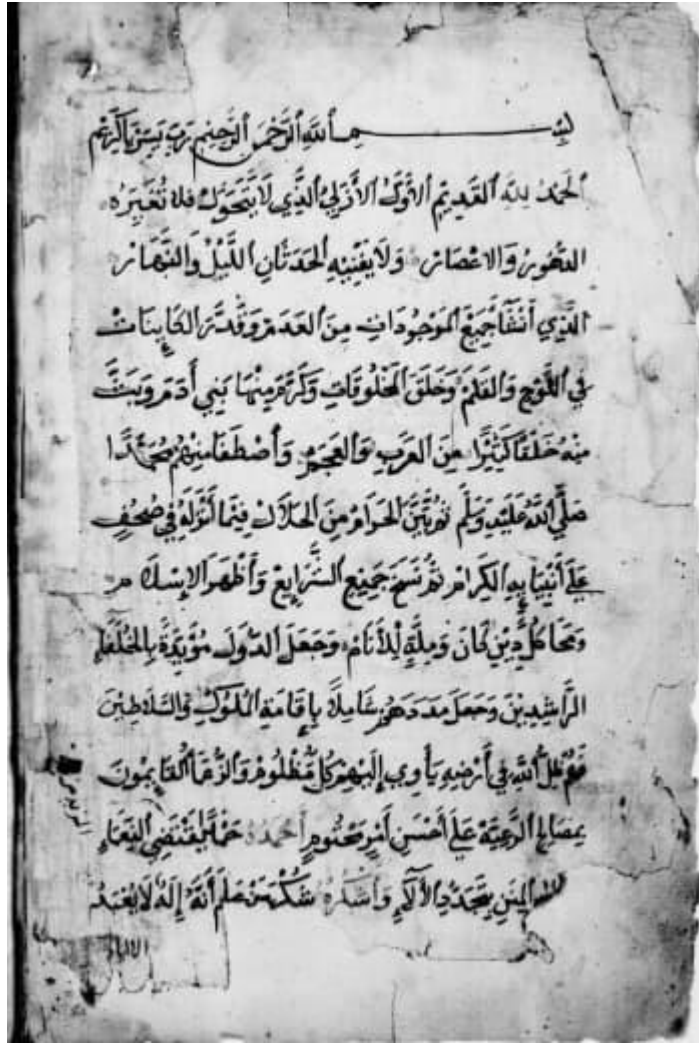 بسم الله الرَّحْمَن الرَّحِيمِ رَبِّ يَسِّرْ يَا كَرِيْم
الحَمْدُ لِلَّهِ القَدِيمِ الأَوَّلُ الأَزَلِيُ الَّذِي لَا يَتَحَوَّلُ فلا تُغَيِّرُهُ
الدُهُورُ وَالاعْصَارُ وَلَا يُفْنِيهِ الحَدَثَانِ اللَّيْلُ وَالنَّهَارُ
الَّذِي جَمِيْعَ المَوْجُودَاتِ مِنَ العَدَمْ وَقَدَّرَ الكَايِنَاتْ
فِي اللَّوْحِ وَالقَلَمْ وَخَلَقَ المَخْلُوقَاتِ وَكَرَّمَ مِنْهَا بَنِي أَدَمَ وَبَثَّ
مِنْهُ خَلْقًا كَثِيْرًا مِنَ العَرَبِ وَالعَجَمْ وَأَصْطَفَا مِنْهُمْ مُحَمَّدًا
صَلَّى اللهُ عَلَيْهِ وَسَلَّم الحَرَامْ مِنَ الحَلَالْ فِيْمَا أَنْزَلَهُ فِي صُحُفٍ
عَلَى أَنْبِيَايِهِ الكِرَامْ ثُمَّ نَسَخَ جَمِيْعِ الشَّرَايِعْ وَأَظْهَرَ الإِسْلَامْ
وَمَحَا كُلُّ دِيْنٍ كَانَ وَمِلَّةٍ لِلأَنَامْ وَجَعَلَ الدُّوَلَ مُؤَيَّدَةً بِالخُلَفَاءِ
الرَّاشِدِيْنَ وَجَعَلَ مَدَدَهُمْ شَامِلًا بِإِقَامَةِ المُلُوكِ وَالسَّلَاطِيْنَ
فَهُمْ ظِلُّ اللَّهِ فِي أَرْضِهِ يَأْوِي إِلَيْهِمْ كُلُّ مَظْلُومْ القَايِمُونَ
بِمَصَالِحِ الرَّعِيَّةِ عَلَى أَحْسَنِ أَمْرٍ مَحْتُومٍ أَحْمَدُهُ حَمْدًا يَقْتَضِي النَعْمَاءِ
المِنَنِ بِتَجَدُّدِ الأَلآءِ وَأَشْكُرُهُ شُكْرَ مَنْ عَلِمَ أَنَّهُ إِلَهٌ لَا يُعْبَدُ